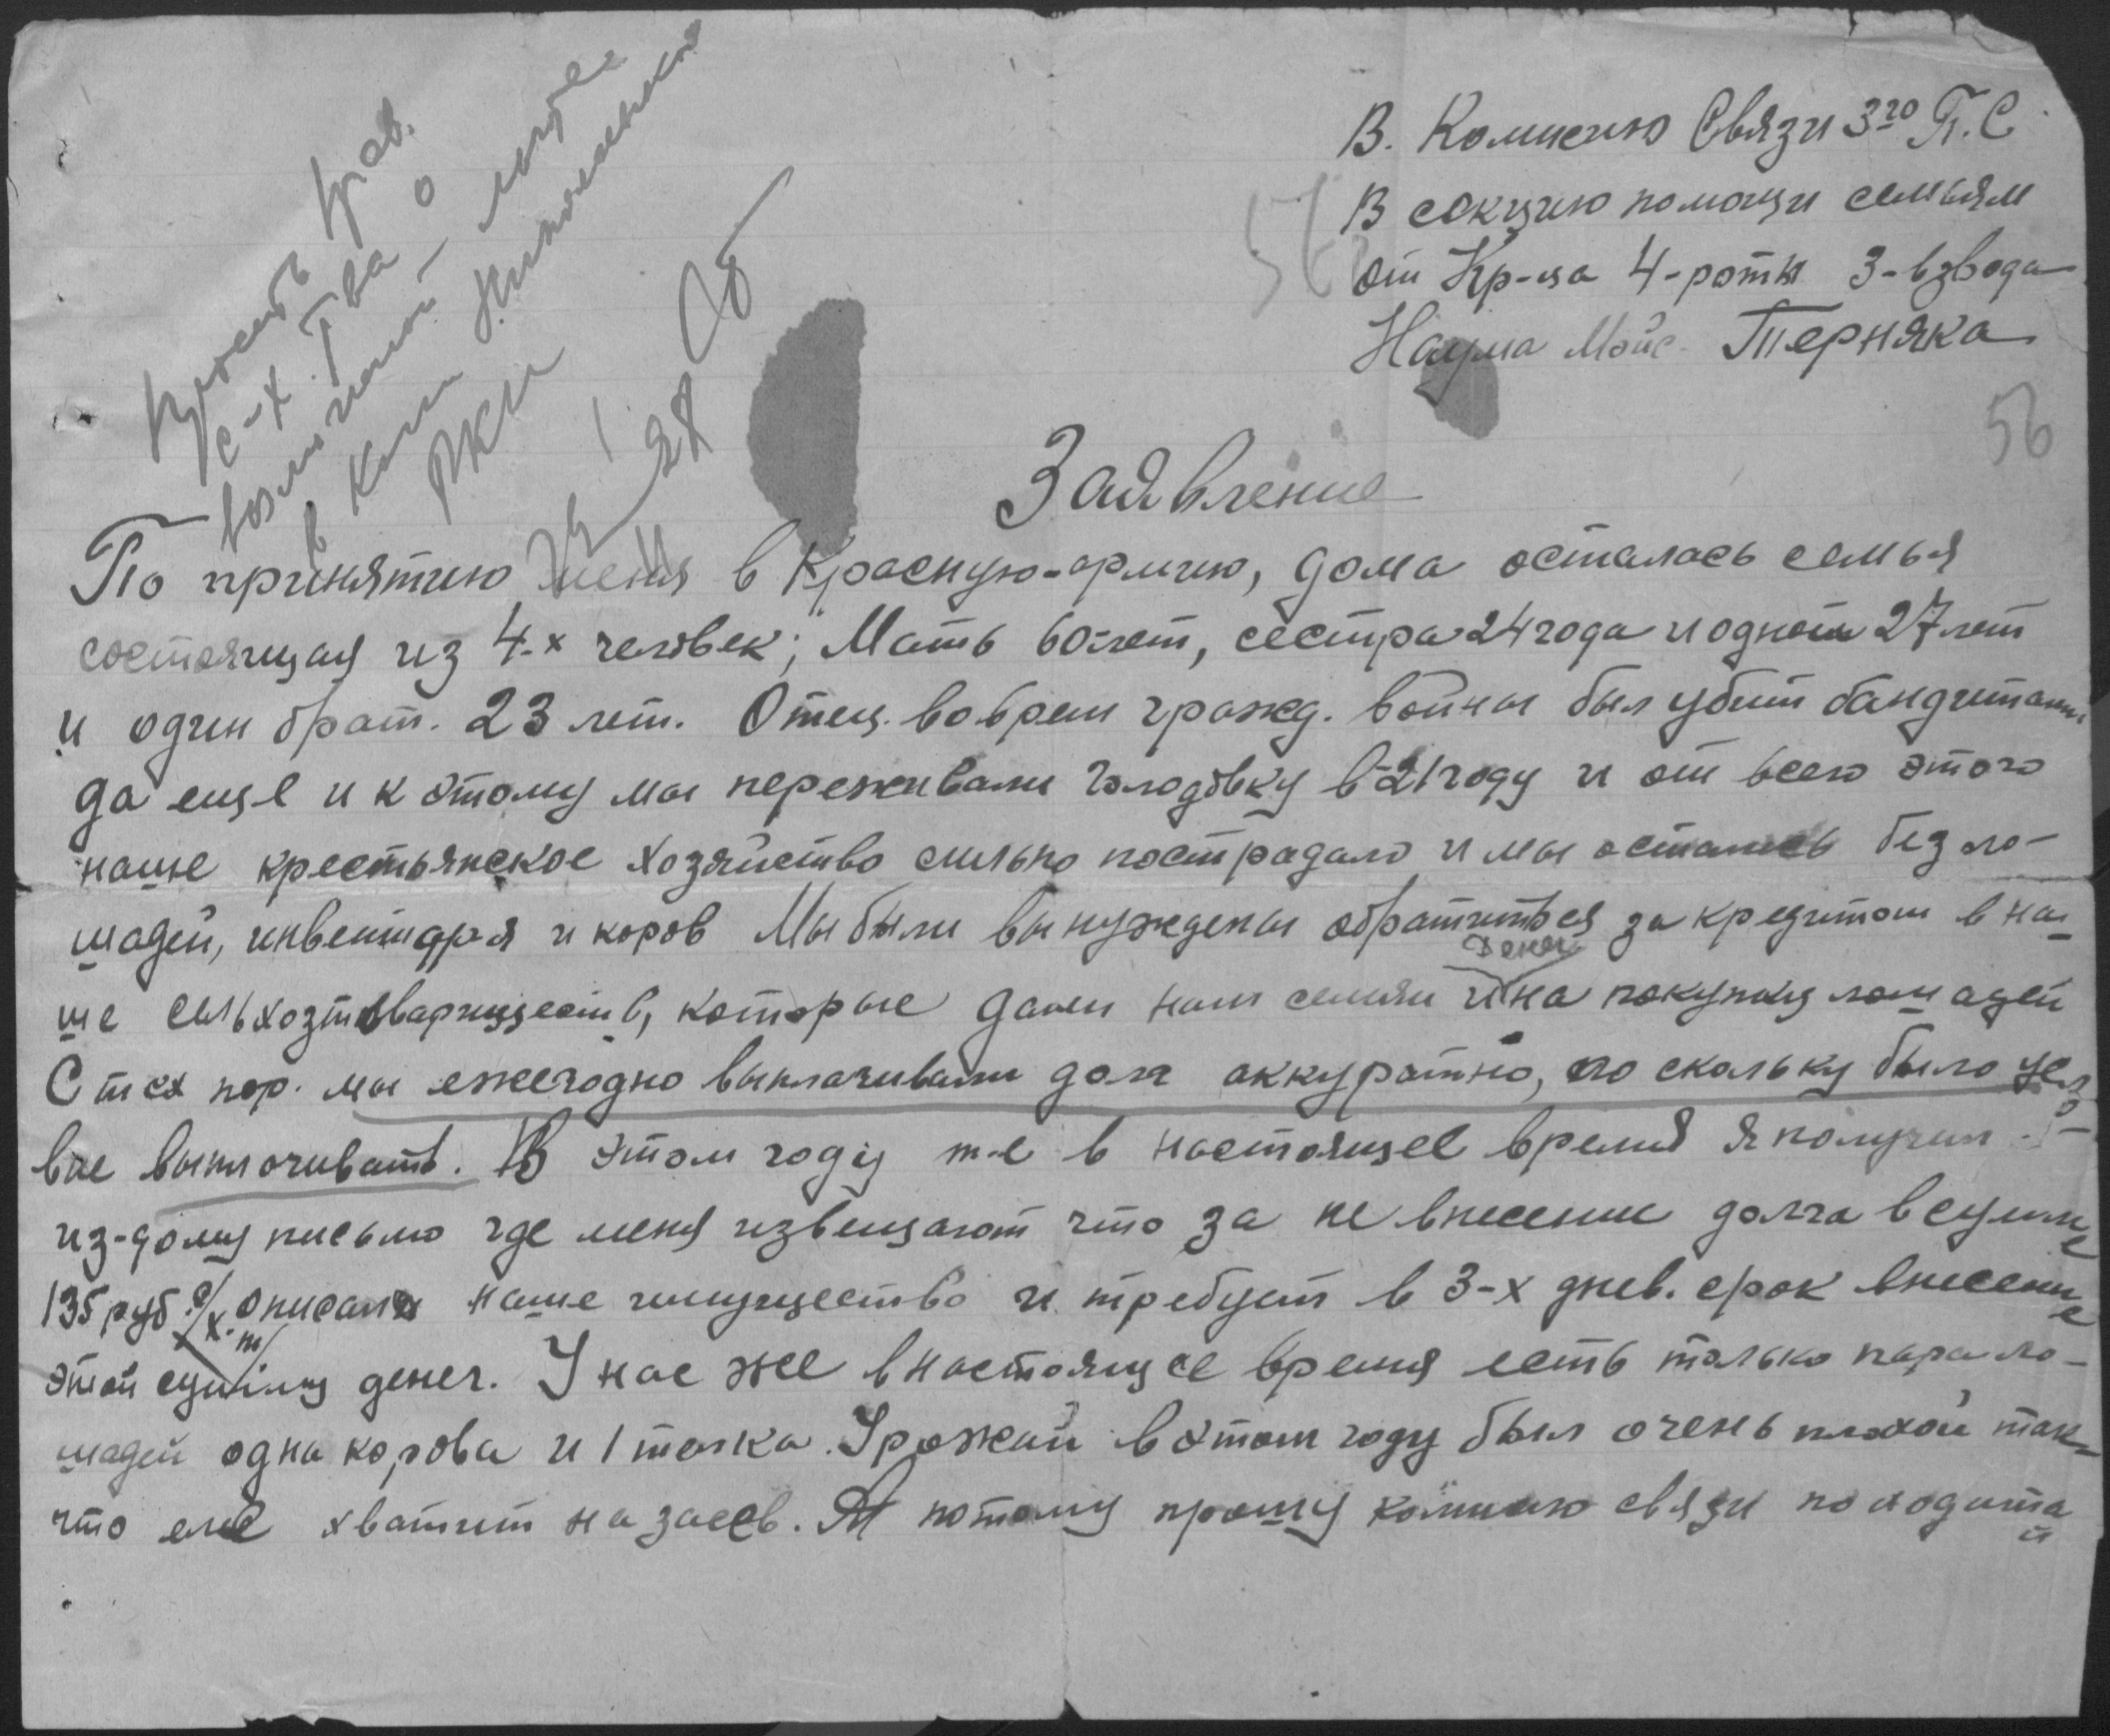 В. Комисию Связи 3го П.С
В секцию помощи семьям
от Кр-ца 4-роты 3-взвода
Наума Мойс. Терняка
56
56
Просить прав.
с-х. Т-ва о
в Ком
РКИ
Заявление
По принятию меня в Красную-армию, дома осталось семья
состоящая из 4-х человек; Мать 60-лет, сестра 24 года и одной 27 лет
и один брат. 23 лет. Отец. во врем гражд. войны был убит бандитами
да еще и к этому мы переживали голодовку в-21 году и от всего этого
наше крестьянское хозяйство сильно пострадало и мы остались без ло-
шадей, инвентаря и коров Мы были вынуждены обратиться за кредитом в на
Денег
ше сельхозтовариществ, которые дали нам семян и на покупку лошадей
С тех пор. мы ежегодно выплачивали долг аккуратно, по скольку было усло-
вие выплачивать. В этом году т-е в настоящее время я получил
из-дому письмо где меня извещают что за не внесение долга в сумме
135 руб. с/х. т/ описали наше имущество и требует в 3-х днев. срок внесение
этой сумму денег. У нас же в настоящее время есть только пара ло-
шадей одна корова и 1 телка. Урожай в этом году был очень плохой так-
что еле хватит на засев. А потому прошу комисию связи походатай